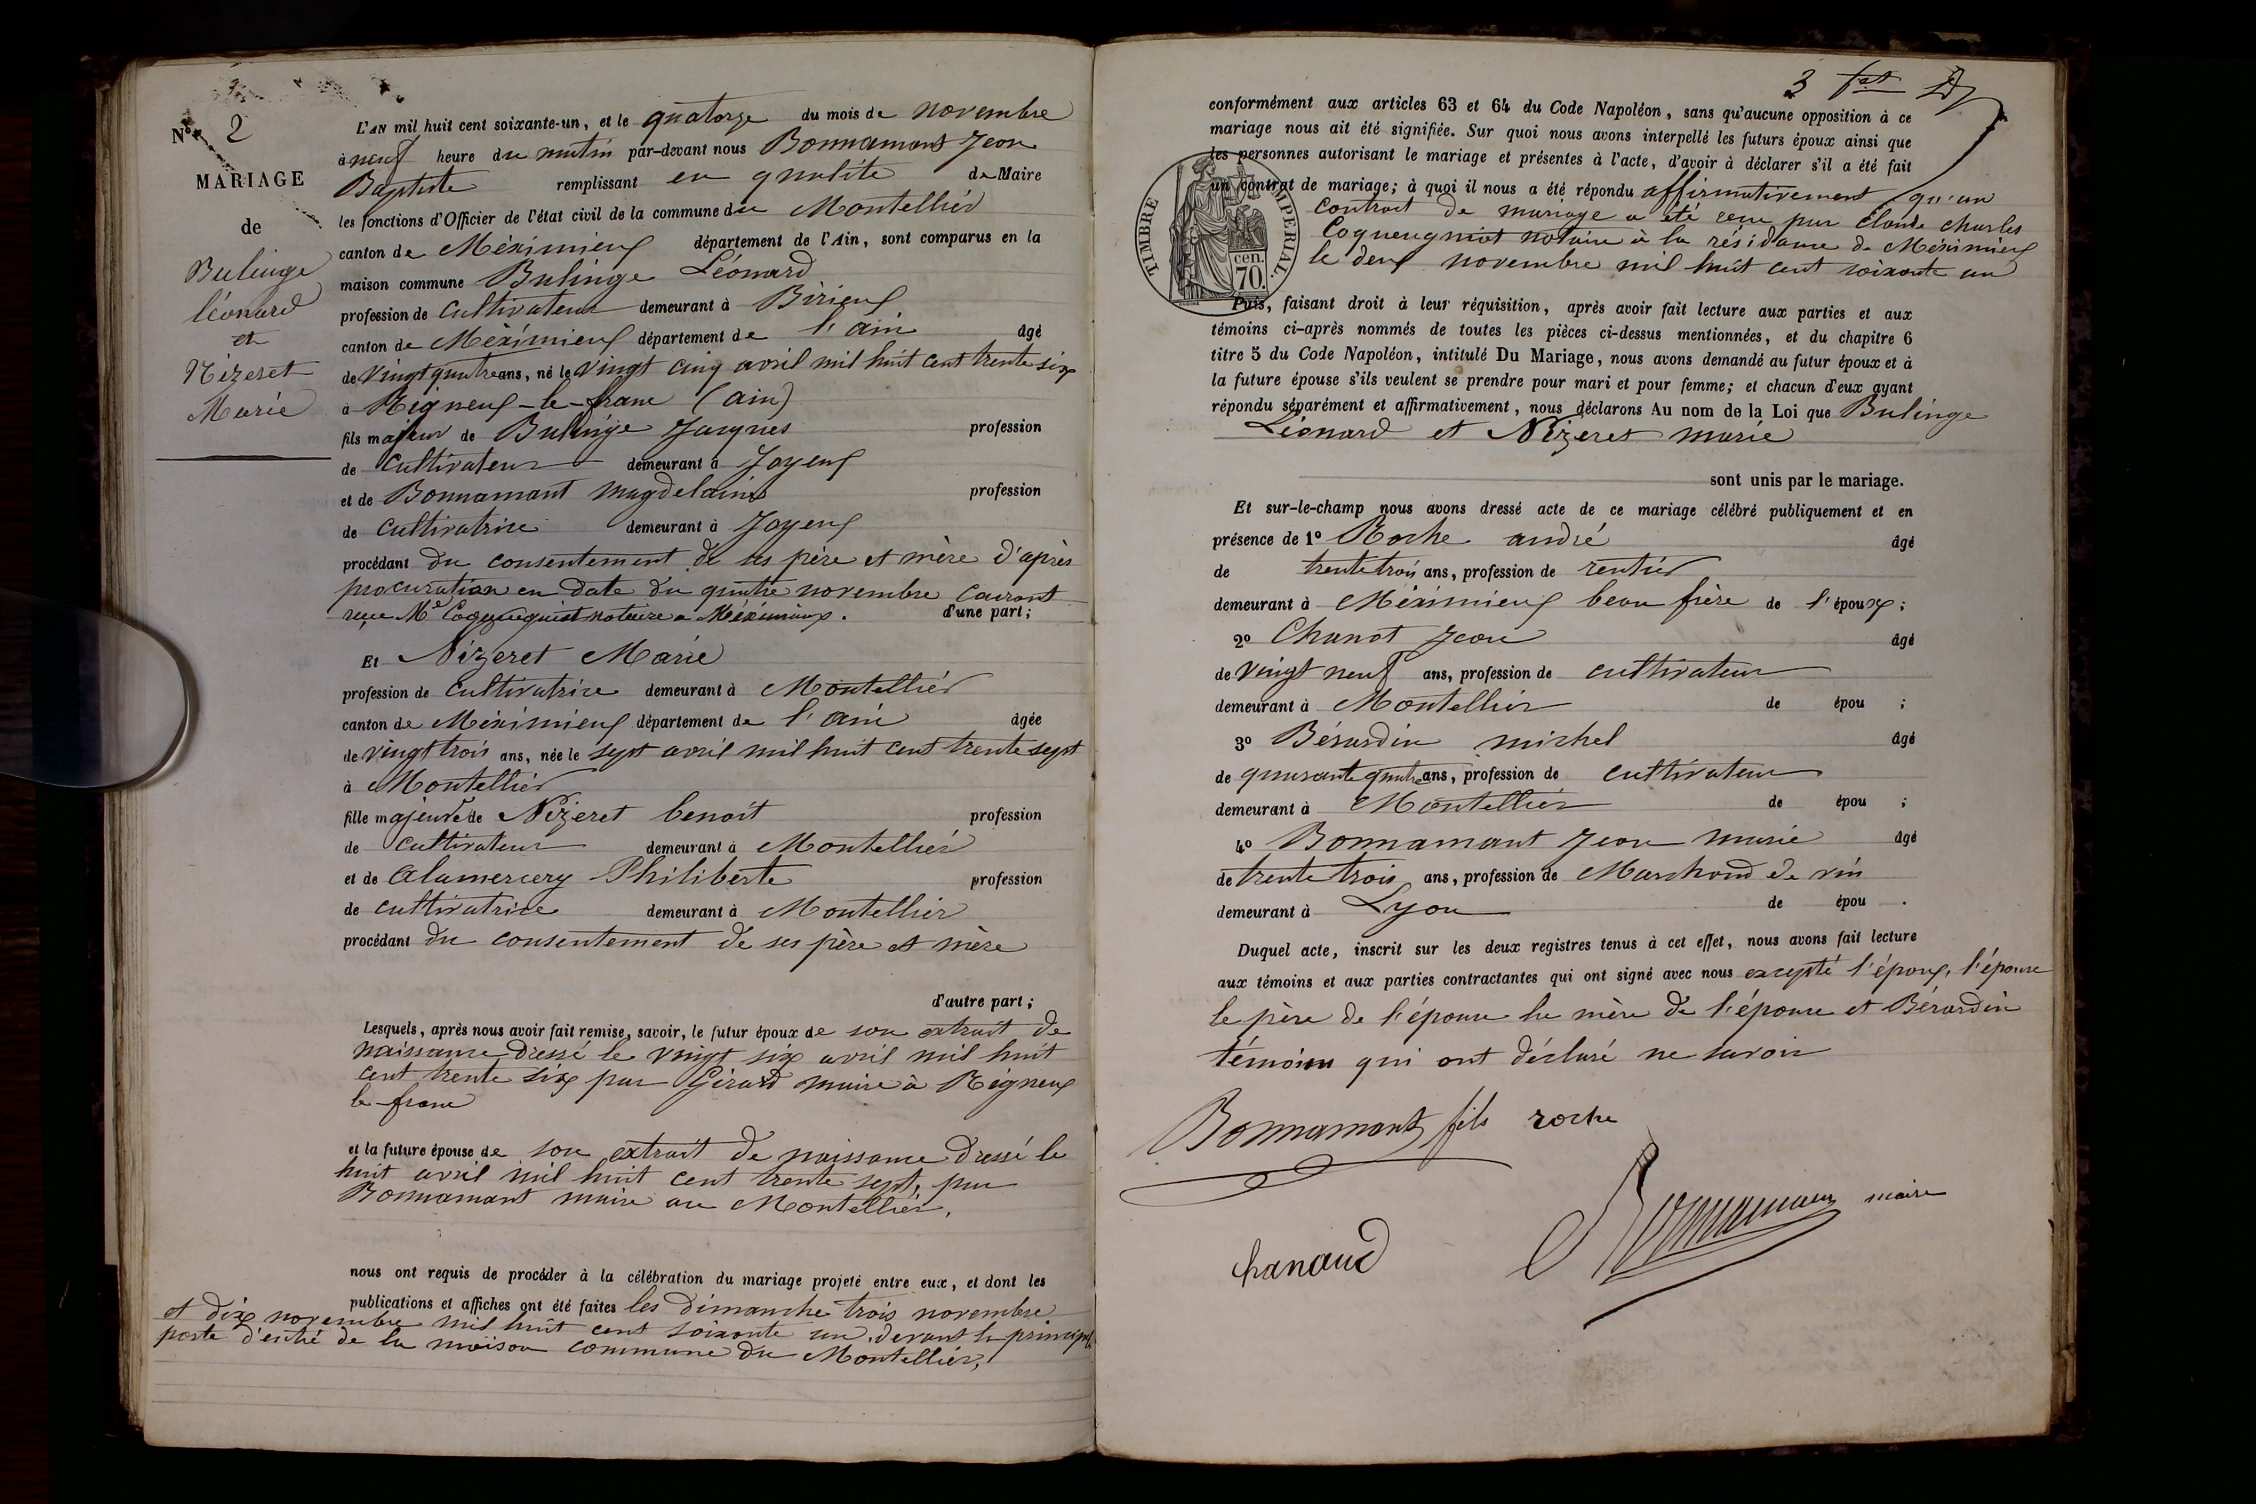 N° 2
MARIAGE
de
Bulinge
léonard
et
Nizeret
Marie
L'AN mil huit cent soixante-un, et le quatorze du mois de novembre
à neuf heure du matin par-devant nous Bonnamant Jean
Baptiste remplissant en qualité de Maire
les fonctions d'Officier de l'état civil de la commune du Montellier
canton de Méximieux département de l'Ain, sont comparus en la
maison commune Bulinge Léonard
profession de cultivateur demeurant à Birieux
canton de Méximieux département de l'ain âgé
de vingt quatre ans, né le vingt cinq avril mil huit cent trente six
à Rigneux-le-franc (ain)
fils majeur de Bulinge Jacques profession
de cultivateur demeurant à Joyeux
et de Bonnamant magdelaine profession
de cultivatrice demeurant à Joyeux
procédant du consentement de ses père et mère d'après
procuration en date du quatre novembre courant
reçue Me Coqueugniot notaire a Méximieux. d'une part;
Et Nizeret Marie
profession de cultivatrice demeurant à Montellier
canton de Méximieux département de l'ain âgée
de vingt trois ans, née le sept avril mil huit cent trente sept
à Montellier
fille majeure de Nizeret benoit profession
de cultivateur demeurant à Montellier
et de Alamercery Philiberte profession
de cultivatrice demeurant à Montellier
procédant du consentement de ses père et mère
d'autre part;
Lesquels, après nous avoir fait remise, savoir, le futur époux de son extrait de
naissance dressé le vingt six avril mil huit
cent trente six par Girard maire à Rigneux
le franc
et la future épouse de son extrait de naissance dressé le
huit avril mil huit cent trente sept, par
Bonnamant maire au Montellier,
nous ont requis de procéder à la célébration du mariage projeté entre eux, et dont les
publications et affiches ont été faites les dimanche trois novembre
et dix novembre mil huit cent soixante un, devant la principale
porte d'entré de la maison commune du Montellier,
3
conformément aux articles 63 et 64 du Code Napoléon, sans qu'aucune opposition à ce
mariage nous ait été signifiée. Sur quoi nous avons interpellé les futurs époux ainsi que
les personnes autorisant le mariage et présentes à l'acte, d'avoir à déclarer s'il a été fait
un contrat de mariage; à quoi il nous a été répondu affirmativement qu'un
contrat de mariage a été reçu par Claude charles
Coqueugniot notaire à la résidance de Méximieux
le deux novembre mil huit cent soixante un
TIMBRE IMPÉRIAL.
cen.
70.
Puis, faisant droit à leur réquisition, après avoir fait lecture aux parties et aux
témoins ci-après nommés de toutes les pièces ci-dessus mentionnées, et du chapitre 6
titre 5 du Code Napoléon, intitulé Du Mariage, nous avons demandé au futur époux et à
la future épouse s'ils veulent se prendre pour mari et pour femme; et chacun d'eux ayant
répondu séparément et affirmativement, nous déclarons Au nom de la Loi que Bulinge
Léonard et Nizeret marie
sont unis par le mariage.
Et sur-le-champ nous avons dressé acte de ce mariage célébré publiquement et en
présence de 1° Roche andré âgé
de trente trois ans, profession de rentier
demeurant à Méximieux beau frère de l'époux;
2° Chanot Jean âgé
de vingt neuf ans, profession de cultivateur
demeurant à Montellier de épou ;
3° Bérardin michel âgé
de quarante quatre ans, profession de cultivateur
demeurant à Montellier de épou ;
4° Bonnamant Jean marie âgé
de trente trois ans, profession de Marchand de vin
demeurant à Lyon de épou .
Duquel acte, inscrit sur les deux registres tenus à cet effet, nous avons fait lecture
aux témoins et aux parties contractantes qui ont signé avec nous excepté l'époux, l'épouse
le père de l'épouse la mère de l'épouse et Bérardin
témoins qui ont déclaré ne savoir
Bonnamant fils roche
chanaud Bonnamant maire